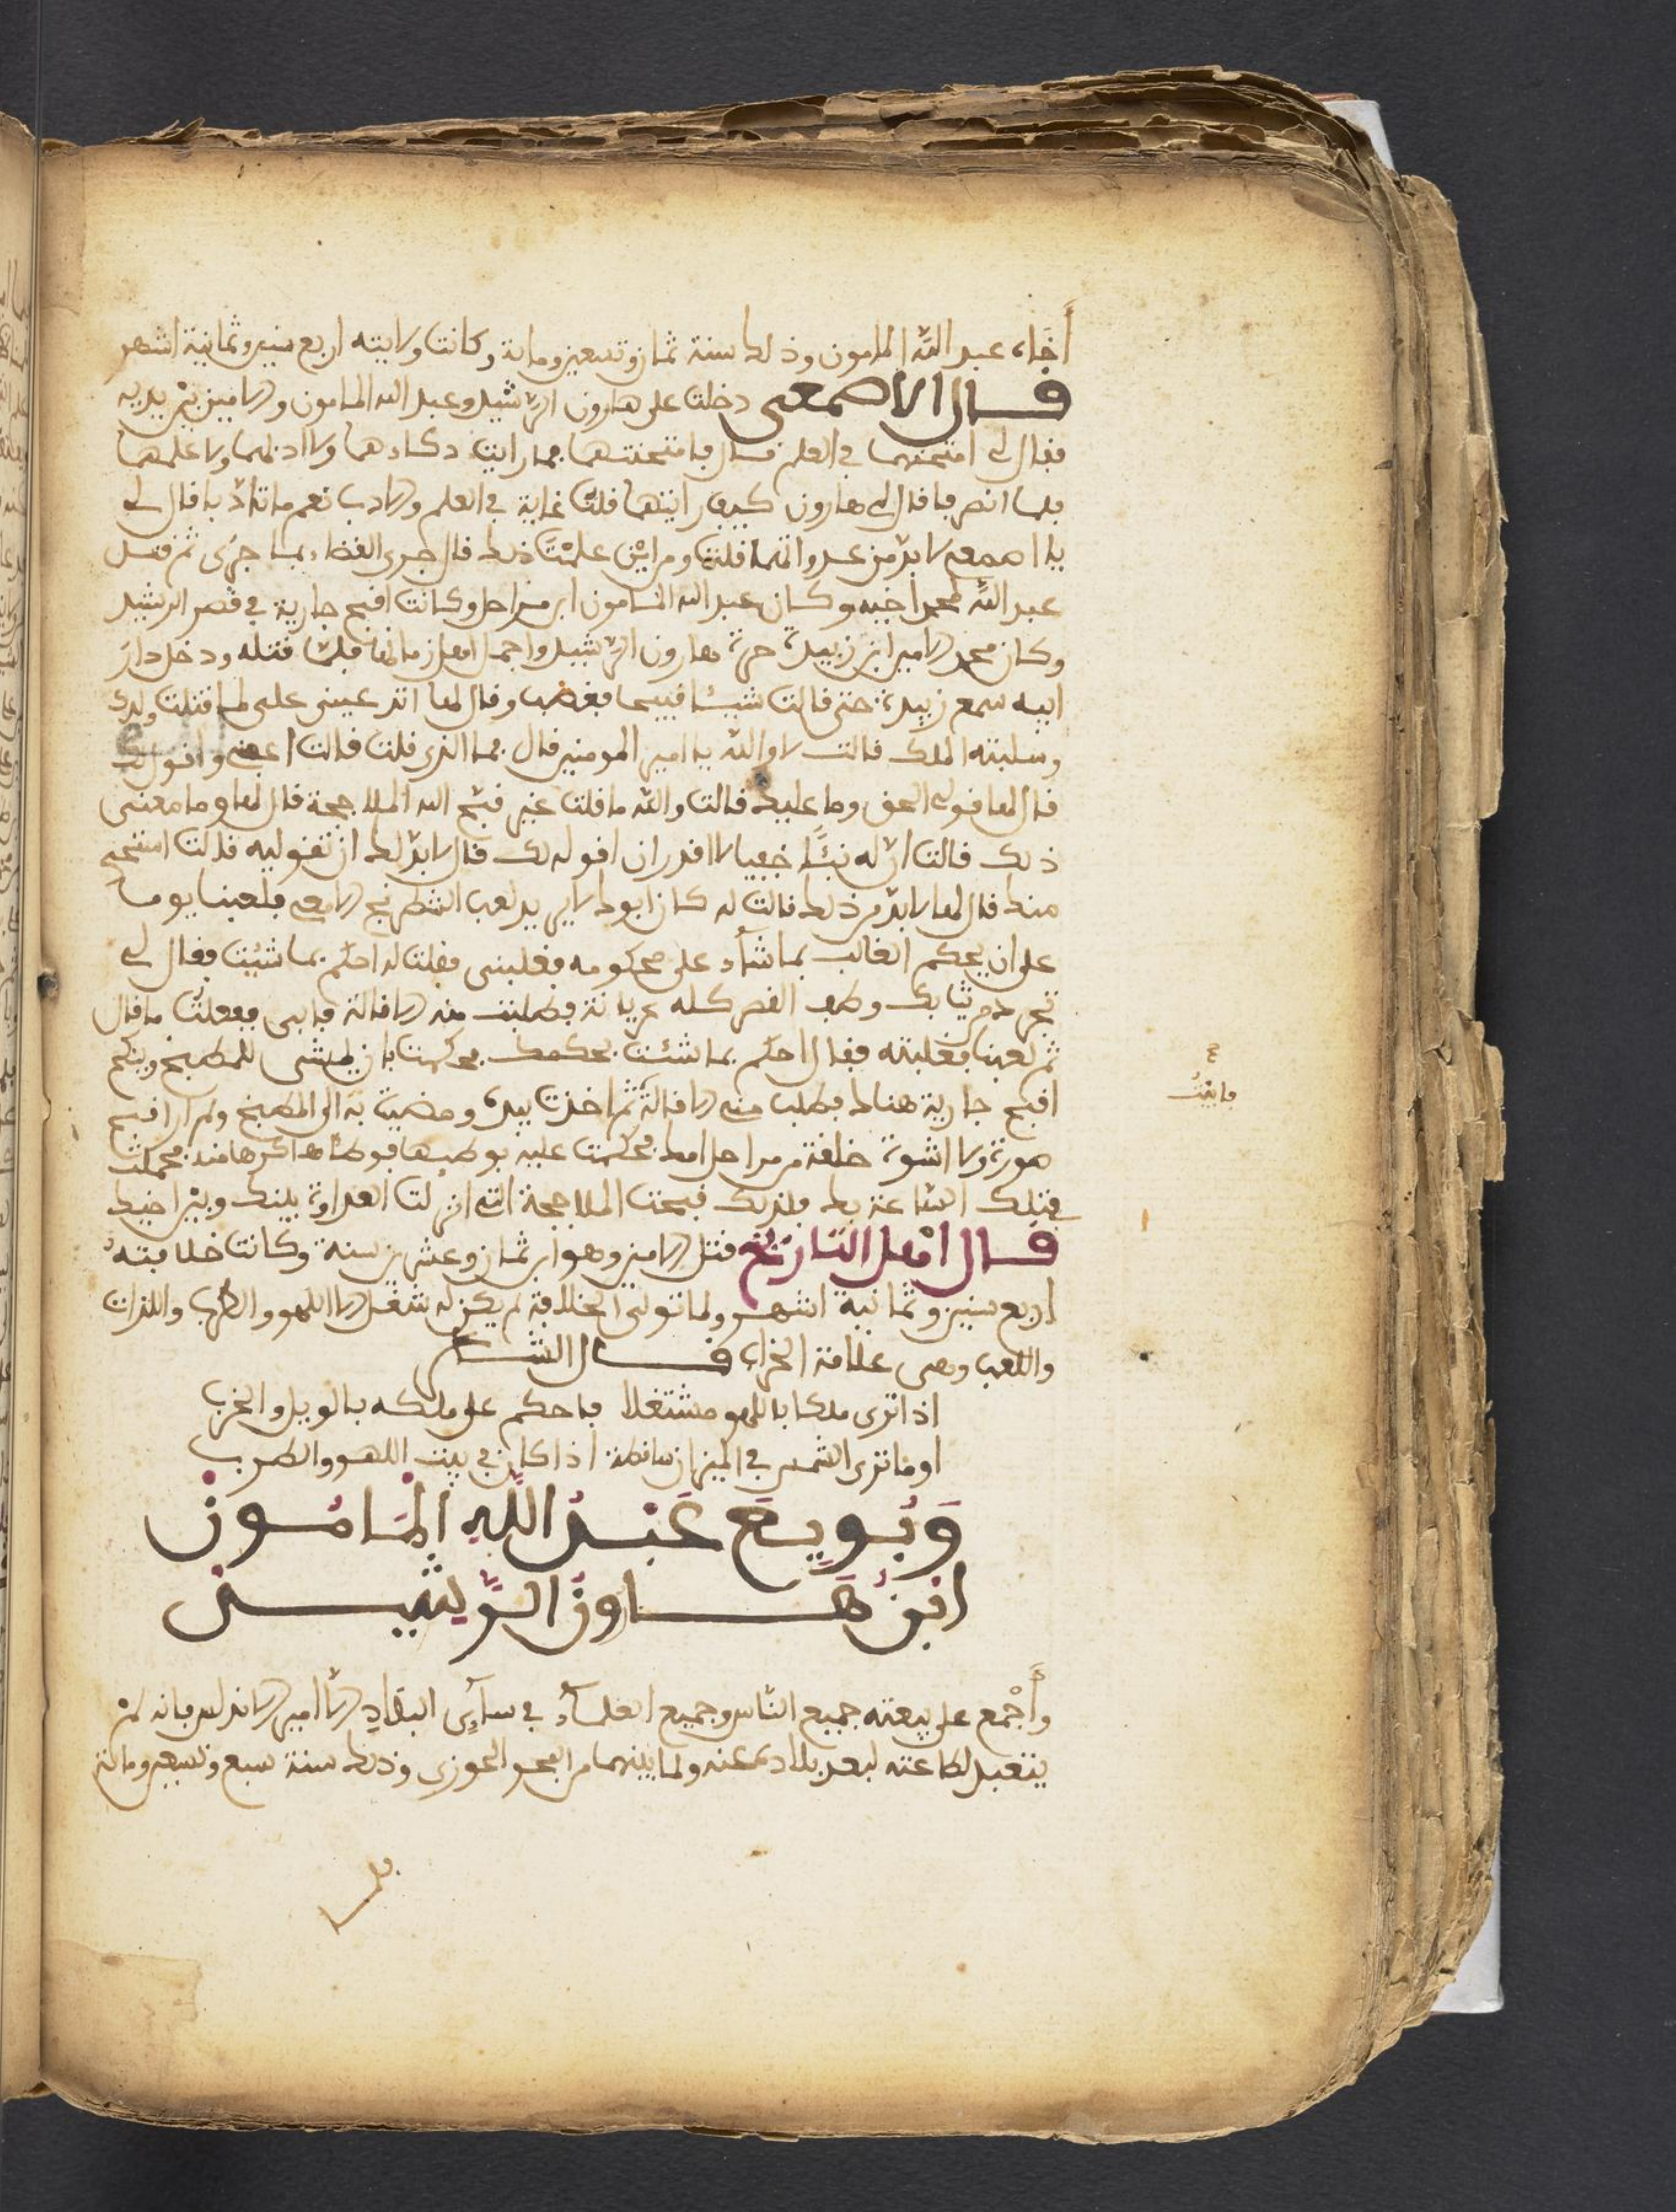 أخاه عبد الله المامون وذلك سنة ثمان وتسعين ومائة وكانت ولايته اربع سنين وثمانية اشهر
قال الاصمعى دخلت على هارون الرشيد وعبد الله المامون والامين بين يديه
فقال لى امتحنهما في العلم قال فامتحنتهما فما رايت ذكاءهما ولا ادبهما ولا علمهما
فلما انصرفا قال لى هارون كيف رايتهما قلت غاية في العلم والادب نعم ما تاذبا قال لى
يا اصمعى لا بد من عداوتهما قلت ومن اين علمت ذلك قال جرى القضاء بما جرى ثم قتل
عبد الله لمحمد اخيه وكان عبد الله المامون ابن مراجل وكانت اقبح جارية في قصر الرشيد
وكان محمد الامير ابن زبيدة حرة هارون الرشيد واجمل اهل زمانها فلما قتله ودخل دار
ابيه سمع زبيدة حتى قالت شيئا قبيحا فغضب وقال لها اتدعين على لما قتلت ولدك
وسلبته الملك قالت لا والله يا امير المومنين قال فما الذى قلت قالت اعفنى وانولك
قال لها قولى الحق وما عليك قالت والله ما قلت غير قبح الله الملاججة قال لها وما معنى
ذلك قالت ان له نبئا خفيا لا اقدر ان اقوله لك قال لا بد لك ان تقوليه قالت استحى
منك قال لها لا بد من ذلك قالت له كان ابوك لا يريد لعب الشطرنج الا معى فلعبنا يوما
على ان يحكم الغالب بما شاء على محكومه فغلبنى فقلت له احكم بما شئت فقال لى
تجرد من ثيابك وطف القصر كله عريانة فطلبت منه الاقالة فابى ففعلت ما قال
ثم لعبنا فغلبته فقال احكم بما شئت فحكمت بان يمشى للمطبخ وينكح
ع
فابيت
اقبح جارية هناك فطلب منى الاقالة ثم اخذت بيده ومضيت به الى المطبخ ولم ار اقبح
صورة ولا اشوه خلقة من مراجل امك فحكمت عليه بوطئها فوطئها كرها منه فحملت
في تلك الساعة بك فلذلك قبحت الملاججة التى انزلت العداوة بينك وبين اخيك
قال اهل التاريخ قتل الامين وهو ابن ثمان وعشرين سنة وكانت خلافته
اربع سنين وثمانية اشهر ولما تولى الخلافة لم يكن له شغل الا اللهو والطرب واللذات
واللعب وهى علامة الخراب قال الشاعر
اذا ترى ملكا باللهو مشتغلا فاحكم على ملكه بالويل والخرب
او ما ترى الشمس في الميزان ساقطة اذا كان في بيت اللهو والطرب
وَبُويِعَ عَبْدُ اللَّهِ الْمَامُونْ
ابْنُ هَارون الرَّشِيد
وأجمع على بيعته جميع الناس وجميع العلماء في ساير البلاد الا امير الاندلس فانه لم
يتقيد لطاعته لبعد بلاده عنه ولما بينهما من البحر الحوزى وذلك سنة سبع وتسعين ومائة